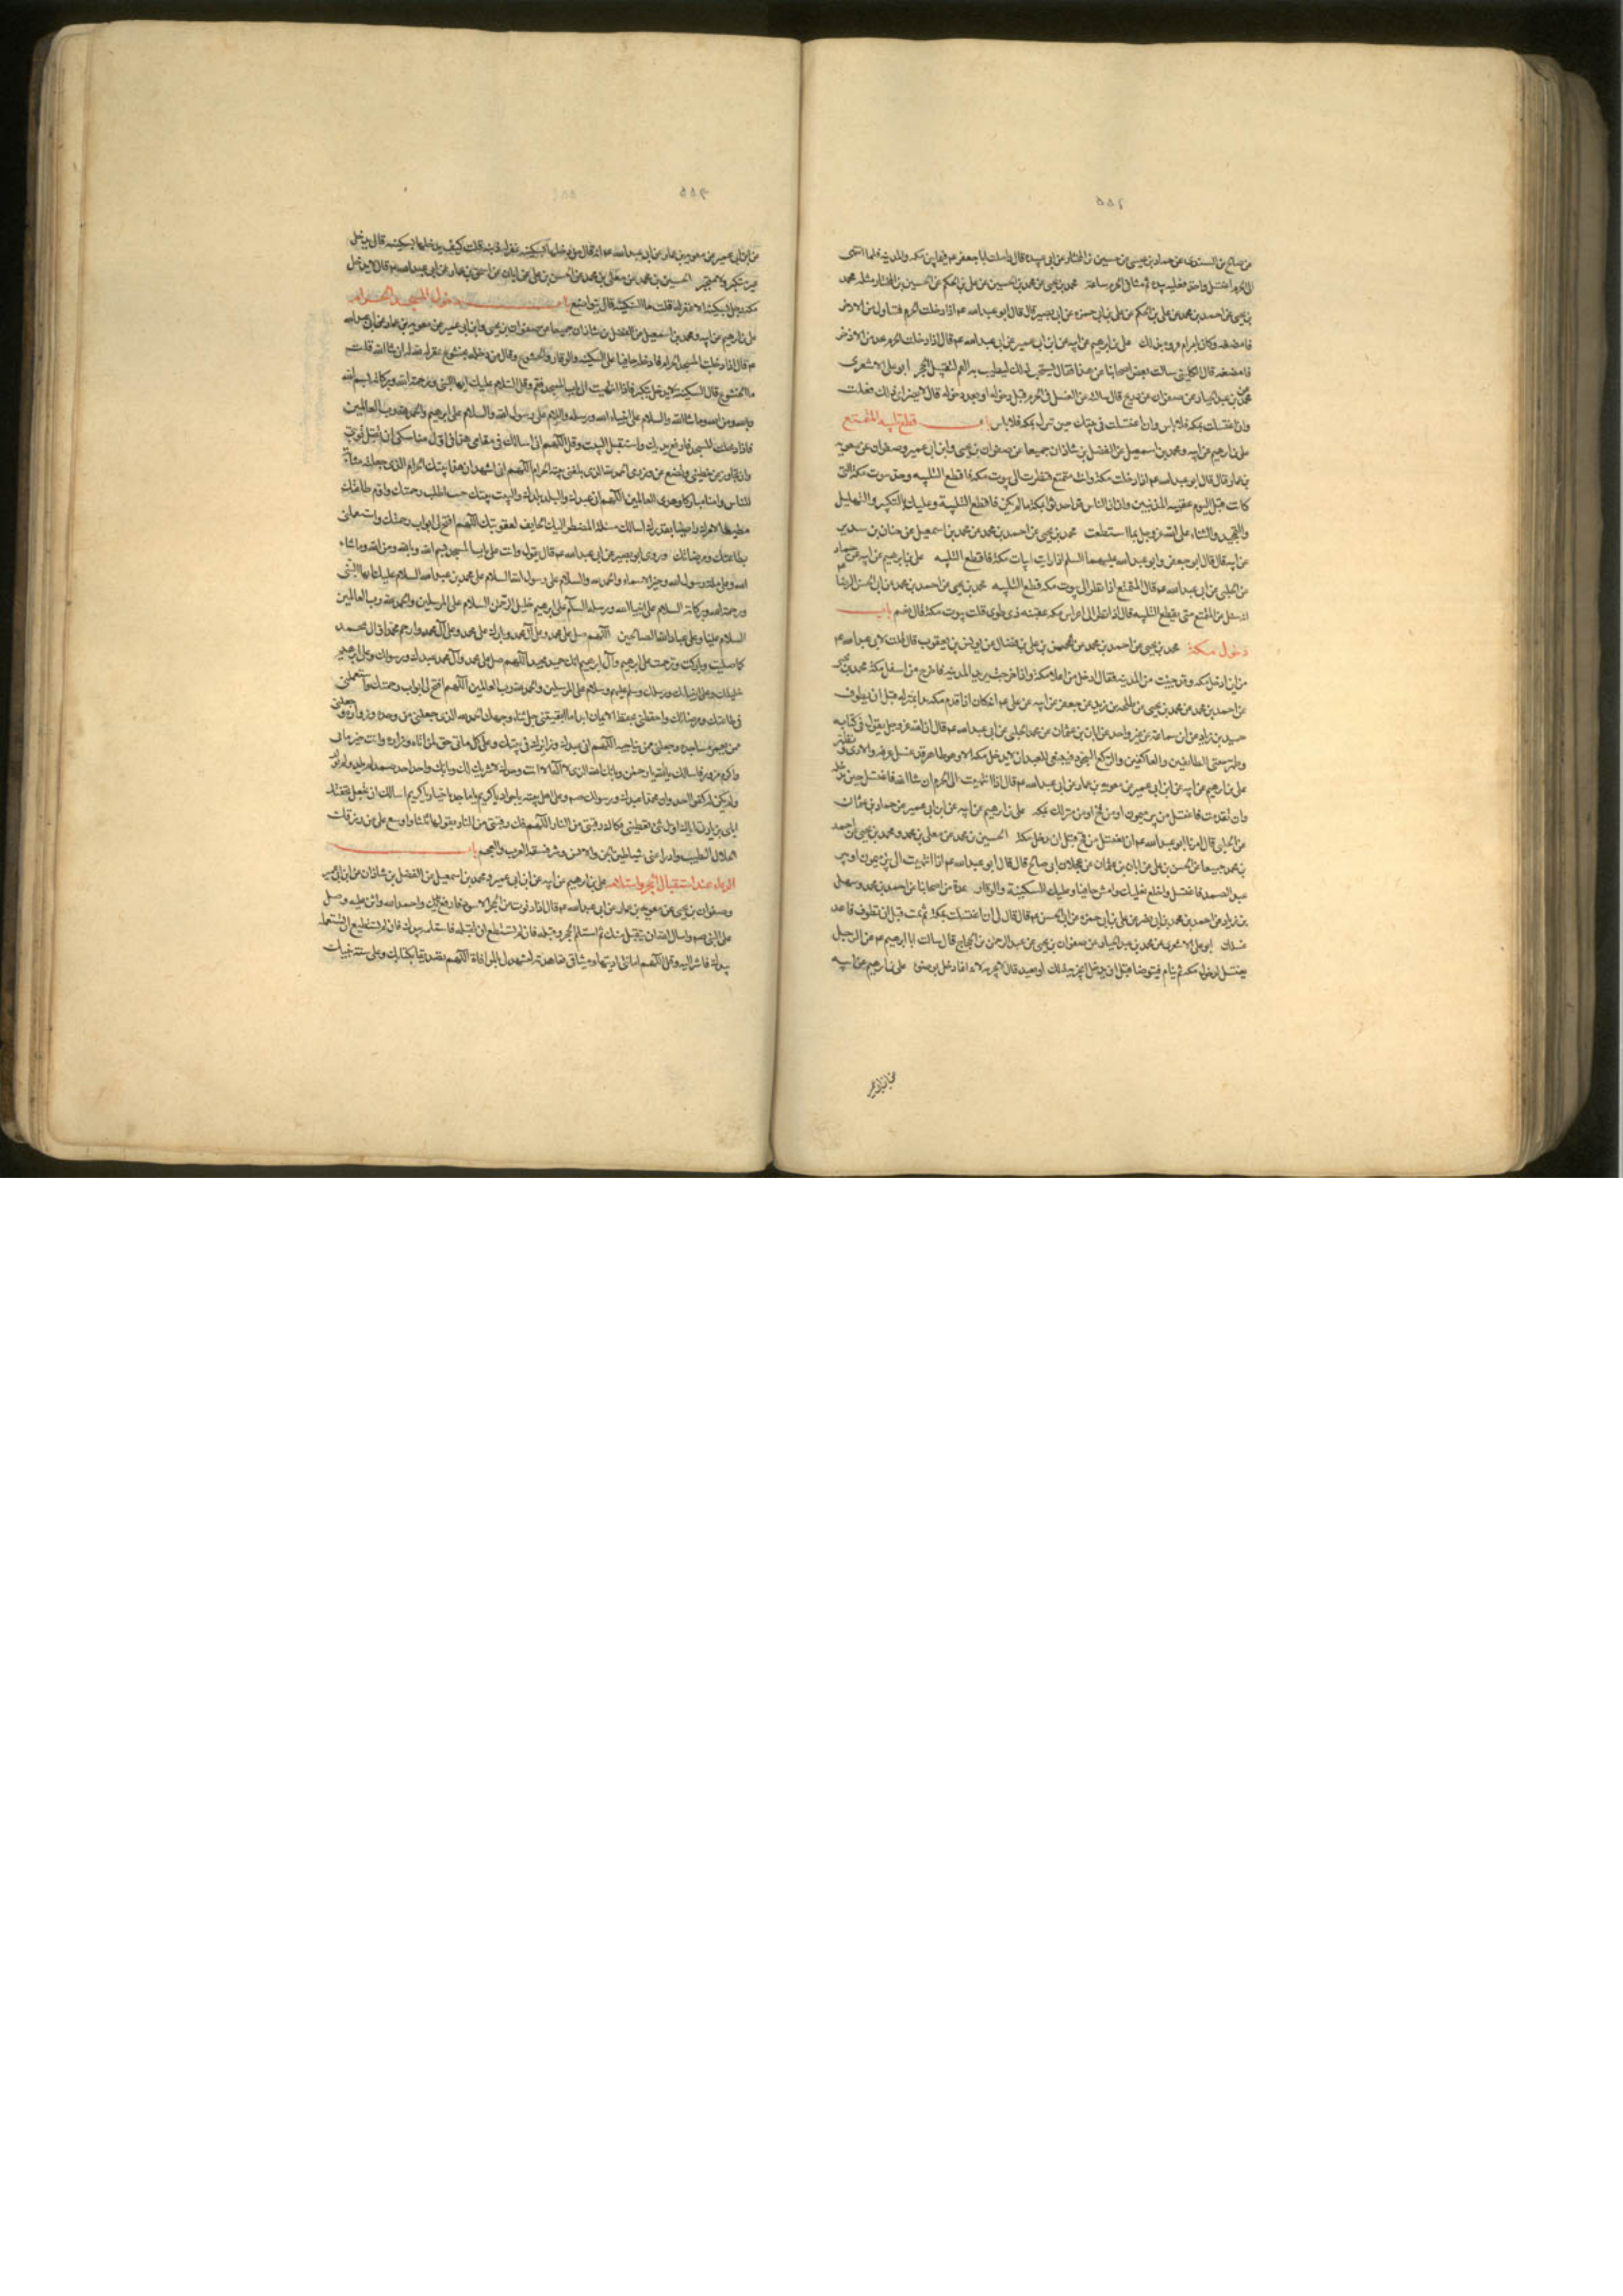 ٤٥٥
عن صالح بن السندى عن حماد بن عيسى عن حسين بن المختار عن ابى عبيده قال زاملت ابا جعفر ع فيما بين مكه والمدينه فلما انتهى
الى الحرم اغتسل واخذ نعليه بيديه ثم مشا فى الحرم ساعة محمد بن يحيى عن محمد بن الحسين عن على بن الحكم عن الحسين بن المختار مثله محمد
بن يحيى عن احمد بن محمد عن على بن الحكم عن على بن ابى حمزه عن ابى بصير قال قال ابو عبد الله ع اذا دخلت الحرم فتناول من الاذخر
فامضغه وكان يامر ام فروه بذلك على بن ابرهيم عن ابيه عن ابن ابى عمير عن ابى عبد الله ع قال اذا دخلت الحرم فخذ من الاذخر
فامضغه قال الكلينى سالت بعض اصحابنا عن هذا فقال يستحب ذلك ليطيب به الفم لتقبيل الحجر ابو على الاشعرى
عن محمد بن عبد الجبار عن صفوان عن ذريح قال سالته عن الغسل فى الحرم قبل دخوله او بعد دخوله قال لا يضرك اى ذلك فعلت
وان اغتسلت بمكه فلا باس وان اغتسلت فى بيتك حين تنزل بمكه فلا باس باب قطع تلبيه المتمتع
على بن ابرهيم عن ابيه ومحمد بن اسمعيل عن الفضل بن شاذان جميعا عن صفوان بن يحيى وابن ابى عمير وصفوان عن معويه
بن عمار قال قال ابو عبد الله ع اذا دخلت مكة وانت متمتع فنظرت الى بيوت مكة فاقطع التلبيه وحد بيوت مكة التى
كانت قبل اليوم عقبه المدنيين وان الناس قد احدثوا بمكة ما لم يكن فاقطع التلبية وعليك بالتكبير والتهليل
والتحميد والثناء على الله عز وجل بما استطعت محمد بن يحيى عن احمد بن محمد عن محمد بن اسمعيل عن حنان بن سدير
عن ابيه قال قال ابو جعفر وابو عبد الله عليهما السلم اذا رايت ابيات مكة فاقطع التلبيه على بن ابرهيم عن ابيه عن حماد
عن الحلبى عن ابى عبد الله ع قال المتمتع اذا نظر الى بيوت مكه قطع التلبيه محمد بن يحيى عن احمد بن محمد عن ابى الحسن الرضا ع
انه سئل عن المتمتع متى يقطع التلبيه قال اذا نظر الى اعراس مكه عقبه ذى طوى قلت بيوت مكة قال نعم باب
دخول مكة محمد بن يحيى عن احمد بن محمد عن الحسن بن على بن فضال عن يونس بن يعقوب قال قلت لابى عبد الله ع
من اين ادخل مكه وقد جئت من المدينه فقال ادخل من اعلا مكة واذا خرجت تريد المدينه فاخرج من اسفل مكة محمد بن يحيى
عن احمد بن محمد عن محمد بن يحيى عن طلحه بن زيد عن جعفر عن ابيه عن على ع انه كان اذا قدم مكه بدا بمنزله قبل ان يطوف
حميد بن زياد عن ابن سماعة عن غير واحد عن ابان بن عثمان عن محمد الحلبى عن ابى عبد الله ع قال ان الله عز وجل يقول فى كتابه
وطهر بيتى للطائفين والعاكفين والركع السجود فينبغى للعبد ان لا يدخل مكه الا وهو طاهر قد غسل عرقه والاذى وتطهر
على بن ابرهيم عن ابيه عن ابن ابى عمير عن معويه بن عمار عن ابى عبد الله ع قال اذا انتهيت الى الحرم ان شا الله فاغتسل حين تدخله
وان تقدمت فاغتسل من بير ميمون او من فخ او من منزلك بمكه على بن ابرهيم عن ابيه عن ابن ابى عمير عن حماد بن عثمان
عن الحلبى قال امرنا ابو عبد الله ع ان نغتسل من فخ قبل ان ندخل مكة الحسين بن محمد عن معلى بن محمد ومحمد بن يحيى عن احمد
بن محمد جميعا عن الحسن بن على عن ابان بن عثمان عن عجلان ابى صالح قال قال ابو عبد الله ع اذا انتهيت الى بير ميمون او بير
عبد الصمد فاغتسل واخلع نعليك وامش حافيا وعليك السكينة والوقار عدة من اصحابنا عن احمد بن محمد وسهل
بن زياد عن احمد بن محمد بن ابى نصر عن على بن ابى حمزه عن ابى الحسن ع قال قال لى ان اغتسلت بمكة ثم نمت قبل ان تطوف فاعد
غسلك ابو على الاشعرى عن محمد بن عبد الجبار عن صفوان بن يحيى عن عبد الرحمن بن الحجاج قال سالت ابا ابرهيم ع عن الرجل
يغتسل لدخول مكه ثم ينام فيتوضا قبل ان يدخل ايجزيه ذلك او يعيد قال لا يجزيه لانه انما دخل بوضوء على بن ابرهيم عن ابيه
عن ابن ابى عمير
عن ابن ابى عمير عن معويه بن عمار عن ابى عبد الله ع انه قال من دخلها بسكينه غفر له ذنبه قلت كيف يدخلها بسكينه قال يدخل
غير متكبر ولا متجبر الحسين بن محمد عن معلى بن محمد عن الحسن بن على عن ابان عن اسحق بن عمار عن ابى عبد الله ع قال لا يدخل
مكه رجل بسكينه الا غفر له قلت ما السكينه قال يتواضع باب دخول المسجد الحرام
على بن ابرهيم عن ابيه ومحمد بن اسمعيل عن الفضل بن شاذان جميعا عن صفوان بن يحيى وابن ابى عمير عن معويه بن عمار عن ابى عبد الله
ع قال اذا دخلت المسجد الحرام فادخله حافيا على السكينه والوقار والخشوع وقال من دخله بخشوع غفر له ان شا الله قلت
ما الخشوع قال السكينه لا تدخله بتكبر فاذا انتهيت الى باب المسجد فقم وقل السلام عليك ايها النبى ورحمة الله وبركاته بسم الله
وبالله ومن الله وما شا الله والسلام على انبياء الله ورسله والسلام على رسول الله والسلام على ابرهيم والحمد لله رب العالمين
فاذا دخلت المسجد فارفع يديك واستقبل البيت وقل اللهم انى اسالك فى مقامى هذا فى اول مناسكى ان تقبل توبتى
وان تجاوز عن خطيئتى وتضع عنى وزرى الحمد لله الذى بلغنى بيته الحرام اللهم انى اشهد ان هذا بيتك الحرام الذى جعلته مثابة
للناس وامنا مباركا وهدى للعالمين اللهم انى عبدك والبلد بلدك والبيت بيتك جئت اطلب رحمتك واؤم طاعتك
مطيعا لامرك راضيا بقدرك اسالك مسئلة المضطر اليك الخايف لعقوبتك اللهم افتح لى ابواب رحمتك واستعملنى
بطاعتك ومرضاتك وروى ابو بصير عن ابى عبد الله ع قال تقول وانت على باب المسجد بسم الله وبالله ومن الله وما شاء
الله وعلى ملة رسول الله وخير الاسماء لله والحمد لله والسلام على رسول الله السلام على محمد بن عبد الله السلام عليك ايها النبى
ورحمة الله وبركاته السلام على انبياء الله ورسله السلام على ابرهيم خليل الرحمن السلام على المرسلين والحمد لله رب العالمين
السلام علينا وعلى عباد الله الصالحين اللهم صل على محمد وعلى آل محمد وبارك على محمد وعلى آل محمد وارحم محمدا وال محمد
كما صليت وباركت وترحمت على ابرهيم وآل ابرهيم انك حميد مجيد اللهم صل على محمد وآل محمد عبدك ورسولك وعلى ابرهيم
خليلك وعلى انبيائك ورسلك وسلم عليهم وسلام على المرسلين والحمد لله رب العالمين اللهم افتح لى ابواب رحمتك واستعملنى
فى طاعتك ومرضاتك واحفظنى بحفظ الايمان ابدا ما ابقيتنى جل ثناء وجهك الحمد لله الذى جعلنى من وفده وزواره وجعلنى
ممن يعمر مساجده وجعلنى ممن يناجيه اللهم انى عبدك وزائرك فى بيتك وعلى كل ماتى حق لمن اتاه وزاره وانت خير ماتى
واكرم مزور فاسالك يا الله يا رحمن وبانك انت الله الذى لا اله الا انت وحدك لا شريك لك وبانك واحد احد صمد لم تلد ولم تولد
ولم يكن لك كفوا احد وان محمدا عبدك ورسولك ص وعلى اهل بيته يا جواد يا كريم يا ماجد يا جبار يا كريم اسالك ان تجعل تحفتك
اياى بزيارتى اياك اول شئ تعطينى فكاك رقبتى من النار اللهم فك رقبتى من النار تقولها ثلثا واوسع على من رزقك
الحلال الطيب وادرا عنى شياطين الجن والانس وشر فسقة العرب والعجم باب
الدعاء عند استقبال الحجر واستلامه على بن ابرهيم عن ابيه عن ابن ابى عمير ومحمد بن اسمعيل عن الفضل بن شاذان عن ابن ابى عمير
وصفوان بن يحيى عن معويه بن عمار عن ابى عبد الله ع قال اذا دنوت من الحجر الاسود فارفع يديك واحمد الله واثن عليه وصل
على النبى ص واسال الله ان يتقبل منك ثم استلم الحجر وقبله فان لم تستطع ان تقبله فاستلمه بيدك فان لم تستطع ان تستلمه
بيدك فاشر اليه وقل اللهم امانتى اديتها وميثاقى تعاهدته لتشهد لى بالموافاة اللهم تصديقا بكتابك وعلى سنة نبيك